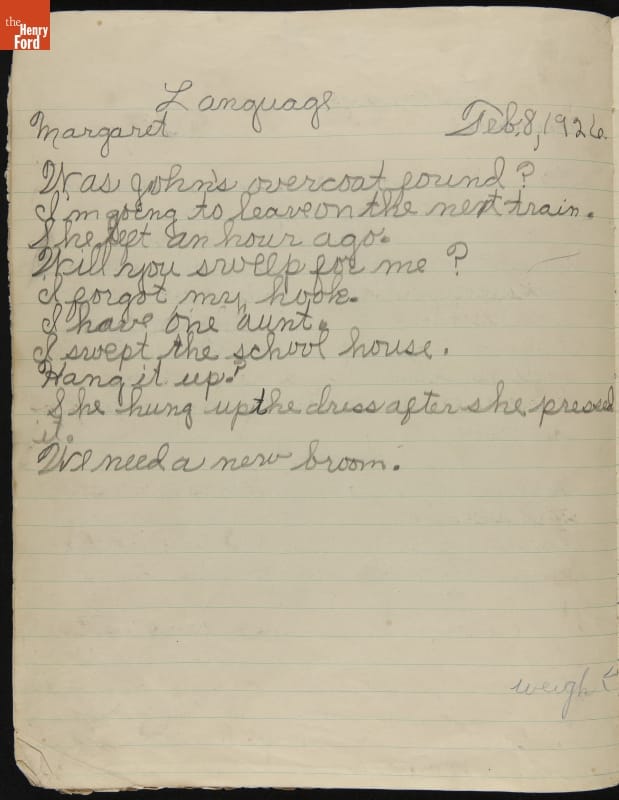 the
Henry
Ford
Language
Margaret Feb. 8, 1926.
Was John's overcoat found?
I'm going to leave on the next train.
She left an hour ago.
Will you sweep for me?
I forgot my hook.
I have one aunt.
I swept the school house.
Hang it up.?
She hung up the dress after she pressed
it.
We need a new broom.
weigh